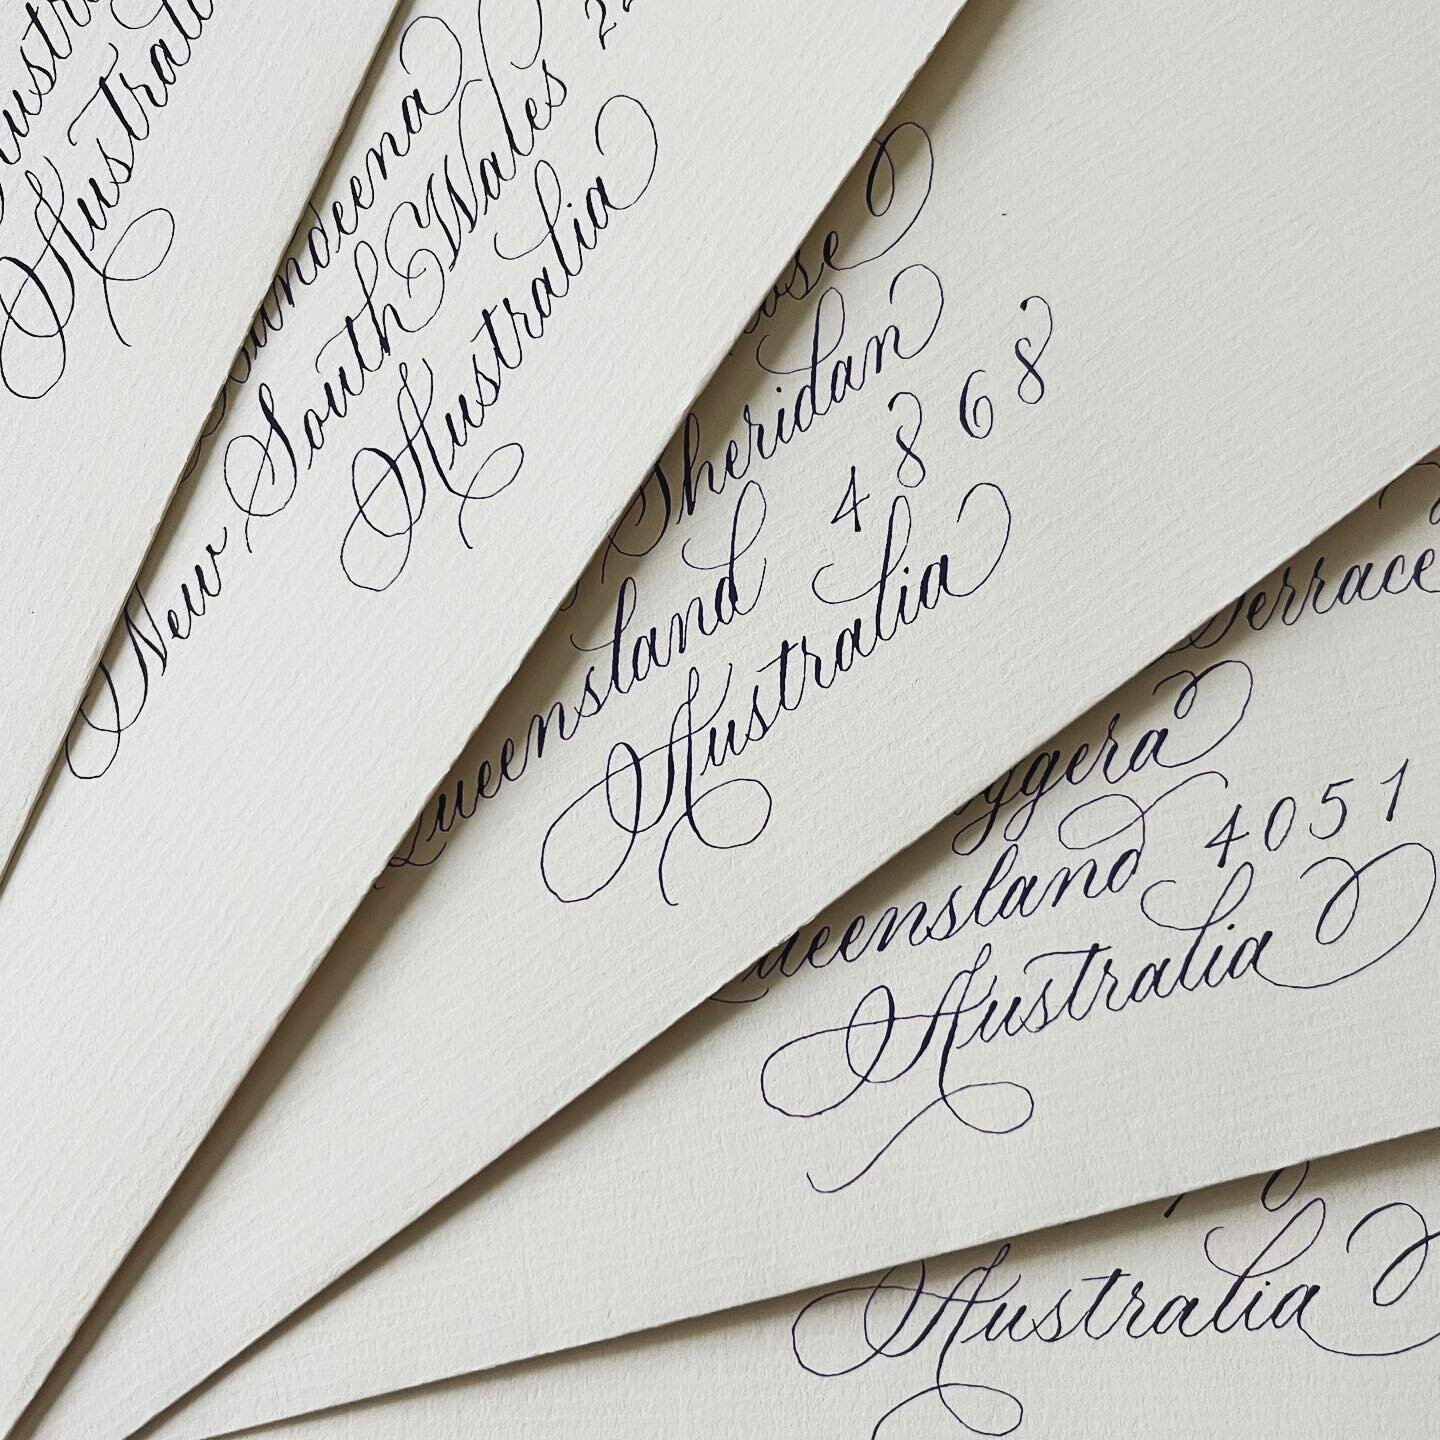 Australia
Bundeena
New South Wales
Australia
Sheridan
Queensland 4868
Australia
Terrace
Queensland 4051
Australia
Australia